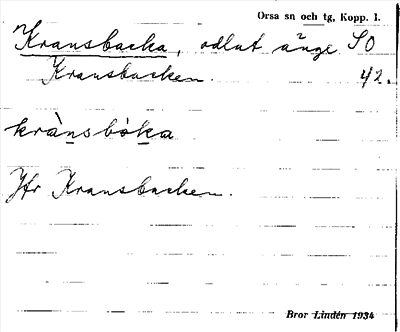 Orsa sn och tg, Kopp. l.
Kransbacka, odlat änge SO
Kransbacken. 42.
krànsbòka
Jfr Kransbacken.
Bror Lindén 1934